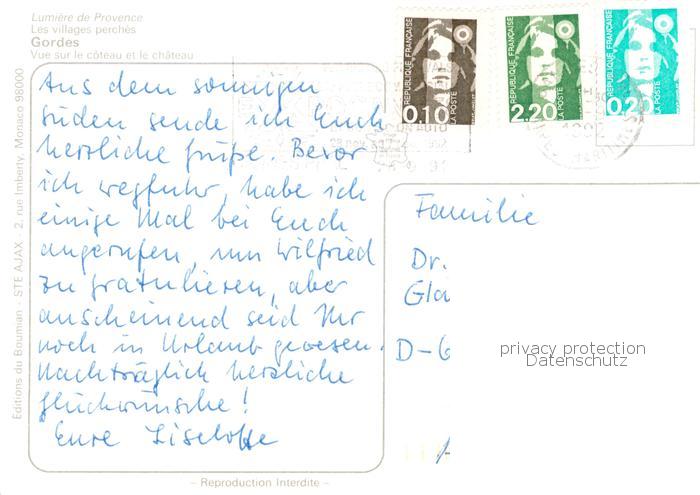 Lumière de Provence
Les villages perchés
Gordes
Vue sur le côteau et le château
Aus dem sonnigen
Süden sende ich Euch
herzliche Grüße. Bevor
ich wegfuhr, habe ich
einige Mal bei Euch
angerufen, um Wilfried
zu gratulieren, aber
anscheinend seid Ihr
noch in Urlaub gewesen.
Nachträglich herzliche
Glückwünsche!
Eure Liselotte
Editions du Boumian - STE AJAX - 2, rue Imberty, Monaco 98000
REPUBLIQUE FRANÇAISE
0.10
LA POSTE
REPUBLIQUE FRANÇAISE
2.20
LA POSTE
REPUBLIQUE FRANÇAISE
0.20
LA POSTE
Familie
Dr.
Gla
D-6
privacy protection
Datenschutz
– Reproduction Interdite –